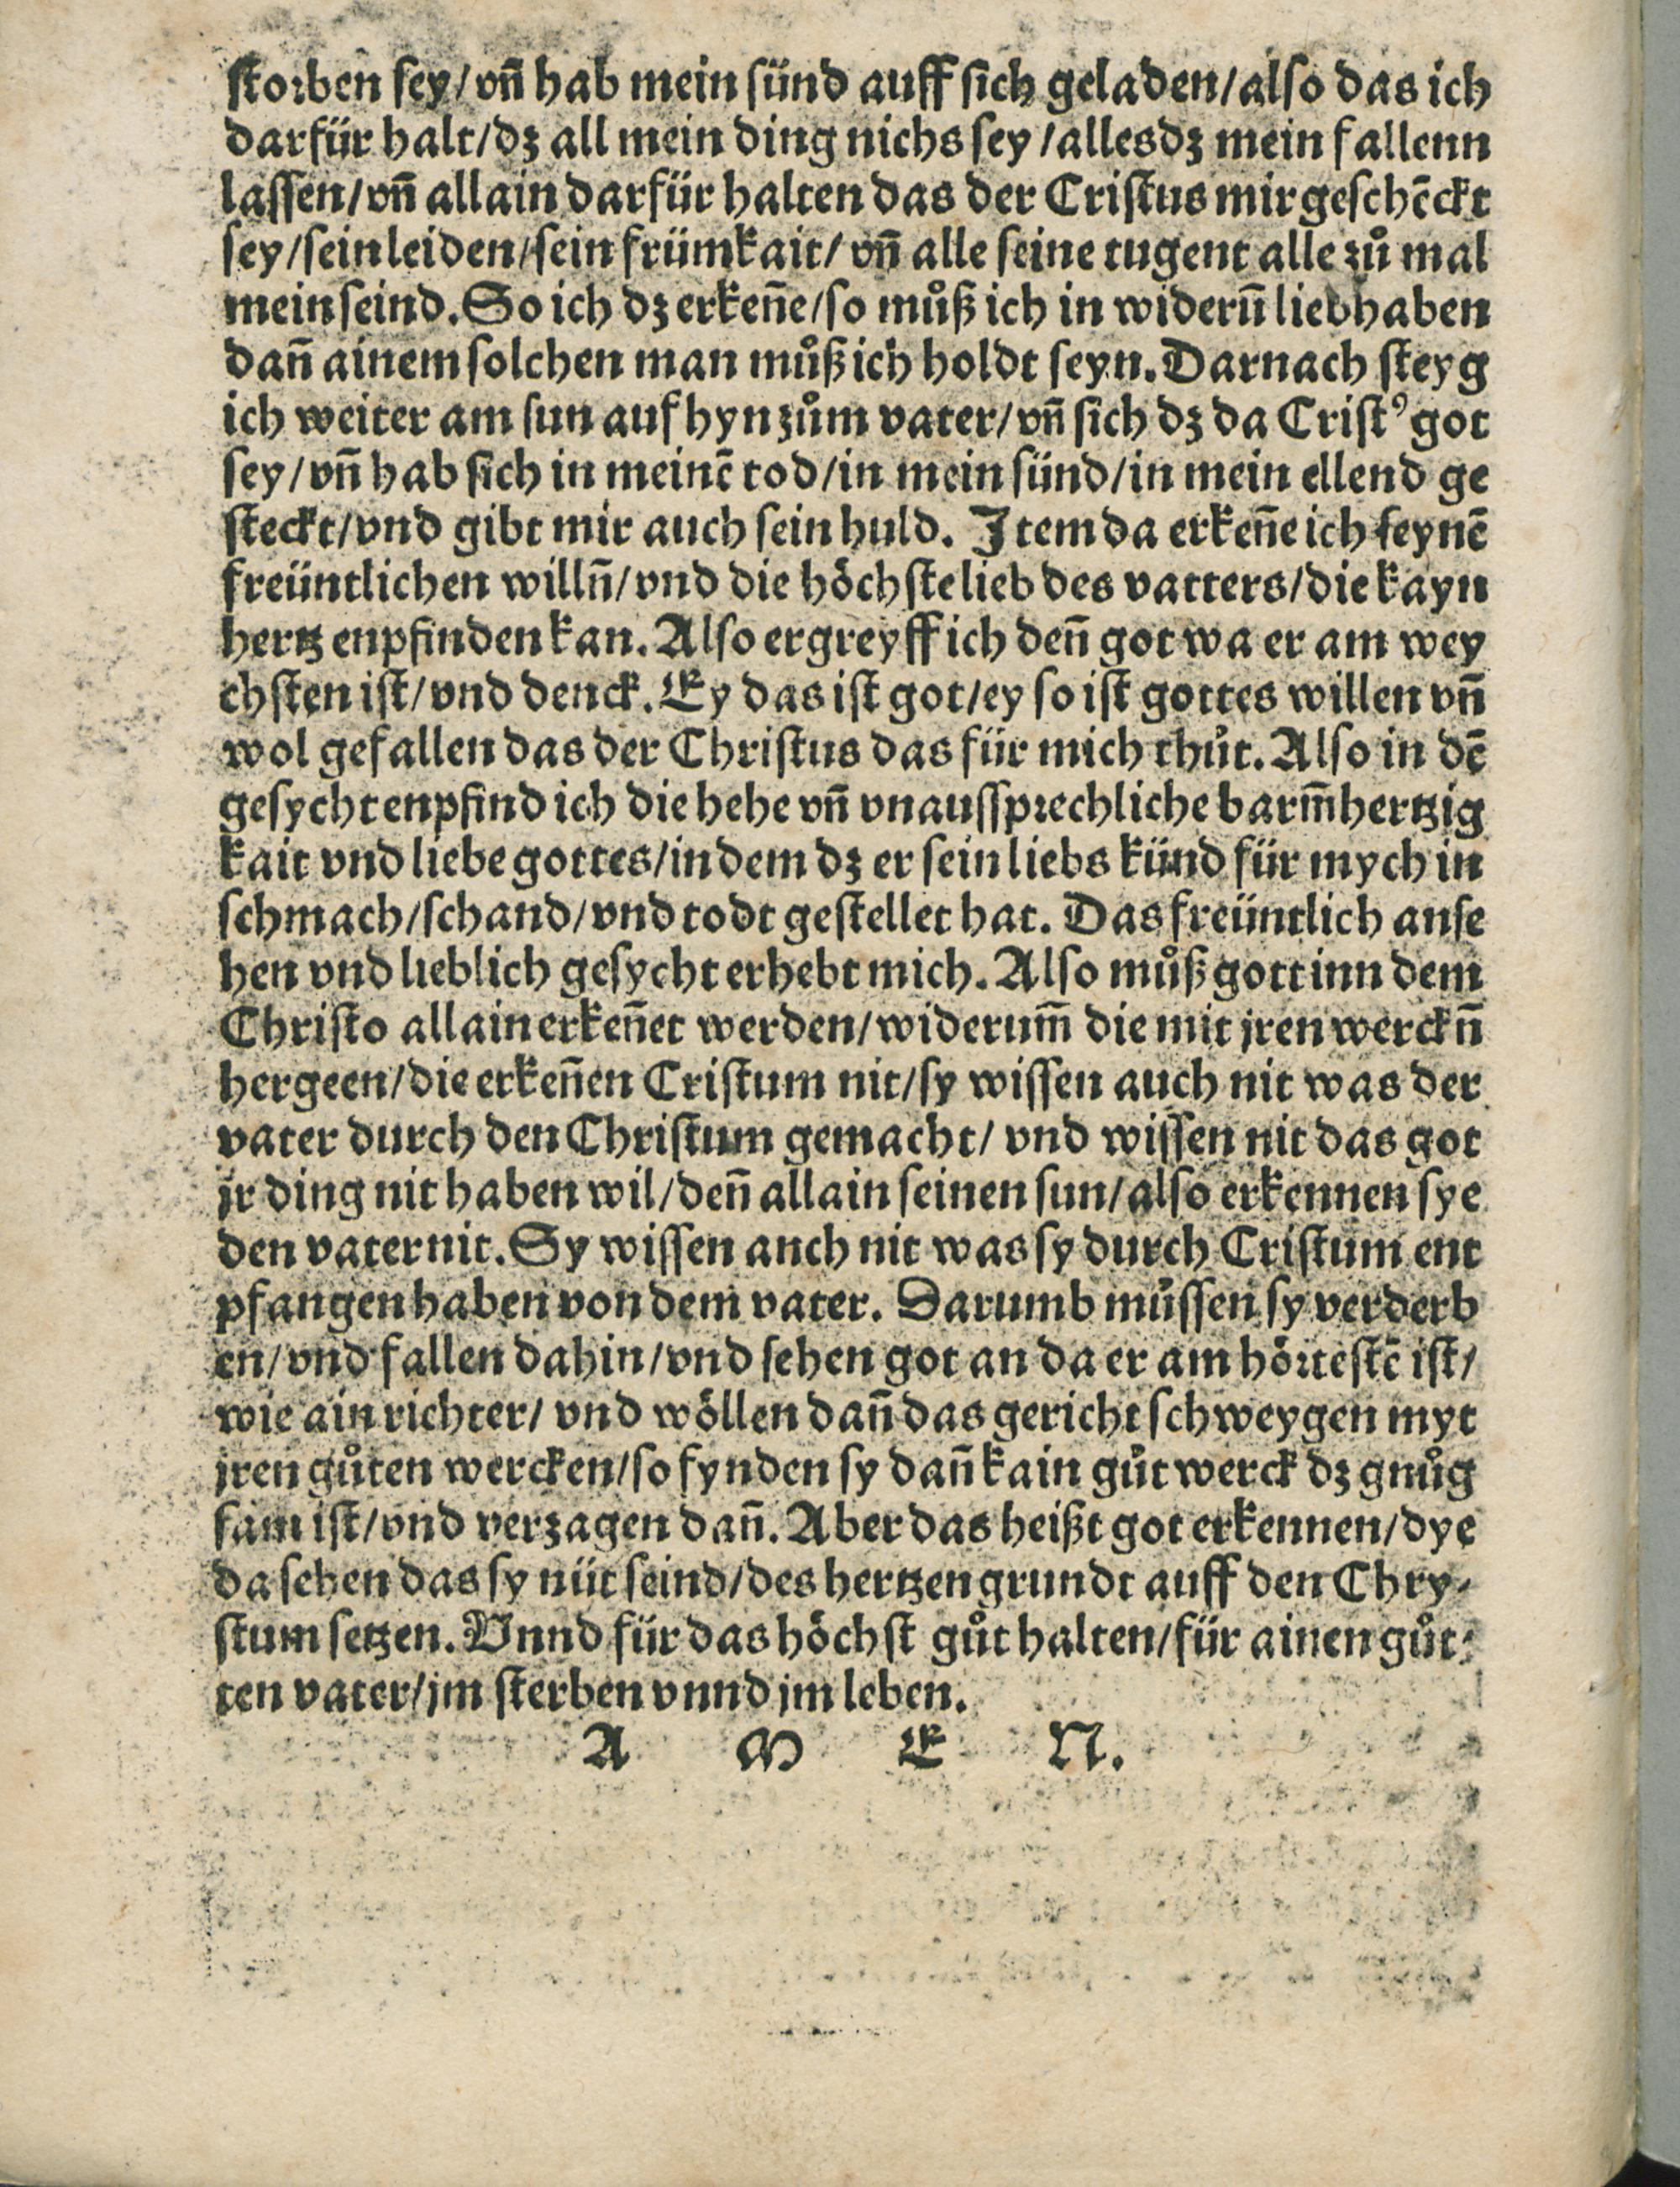 ſtorben ſey/vn̄ hab mein ſünd auff ſich geladen/alſo das ich
darfür halt/dz all mein ding nichs ſey/alles dz mein fallenn
laſſen/vn̄ allain darfür halten das der Criſtus mir geſchēckt
ſey/ſein leiden/ſein frümkait/ vn̄ alle ſeine tugent alle zů mal
mein ſeind. So ich dz erkeñe/ſo můß ich in widerū̄ lieb haben
dañ ainem ſolchen man můß ich holdt ſeyn. Darnach ſteyg
ich weiter am ſun auf hyn zům vater/vn̄ ſich dz da Criſt⁹ got
ſey/vn̄ hab ſich in meinē tod/in mein ſünd/in mein ellend ge
ſteckt/vnd gibt mir auch ſein huld. Item da erkeñe ich ſeynē
freüntlichen willn̄/vnd die höchſte lieb des vatters/die kayn
hertz enpfinden kan. Alſo ergreyff ich deñ got wa er am wey
chſten iſt/vnd denck. Ey das iſt got/ey ſo iſt gottes willen vn̄
wol gefallen das der Chriſtus das für mich thůt. Alſo in dē
geſycht enpfind ich die hehe vn̄ vnauſſprechliche barm̄hertzig
kait vnd liebe gottes/in dem dz er ſein liebs künd für mych in
ſchmach/ſchand/vnd todt geſtellet hat. Das freüntlich anſe
hen vnd lieblich geſycht erhebt mich. Alſo můß gott inn dem
Chriſto allain erkeñet werden/widerum̄ die mit jren werckn̄
hergeen/die erkeñen Criſtum nit/ſy wiſſen auch nit was der
vater durch den Chriſtum gemacht/ vnd wiſſen nit das got
jr ding nit haben wil/deñ allain ſeinen ſun/alſo erkennen ſye
den vater nit. Sy wiſſen anch nit was ſy durch Criſtum ent
pfangen haben von dem vater. Darumb müſſen ſy verderb
en/vnd fallen dahin/vnd ſehen got an da er am hörteſtē iſt/
wie ain richter/ vnd wöllen dañ das gericht ſchweygen myt
jren gůten wercken/ſo fynden ſy dañ kain gůt werck dz gnůg
ſam iſt/vnd verzagen dañ. Aber das heißt got erkennen/dye
da ſehen das ſy nüt ſeind/des hertzen grundt auff den Chry⸗
ſtum ſetzen. Vnnd für das höchſt gůt halten/für ainen gůt⸗
ten vater/jm ſterben vnnd jm leben.
A M E N.